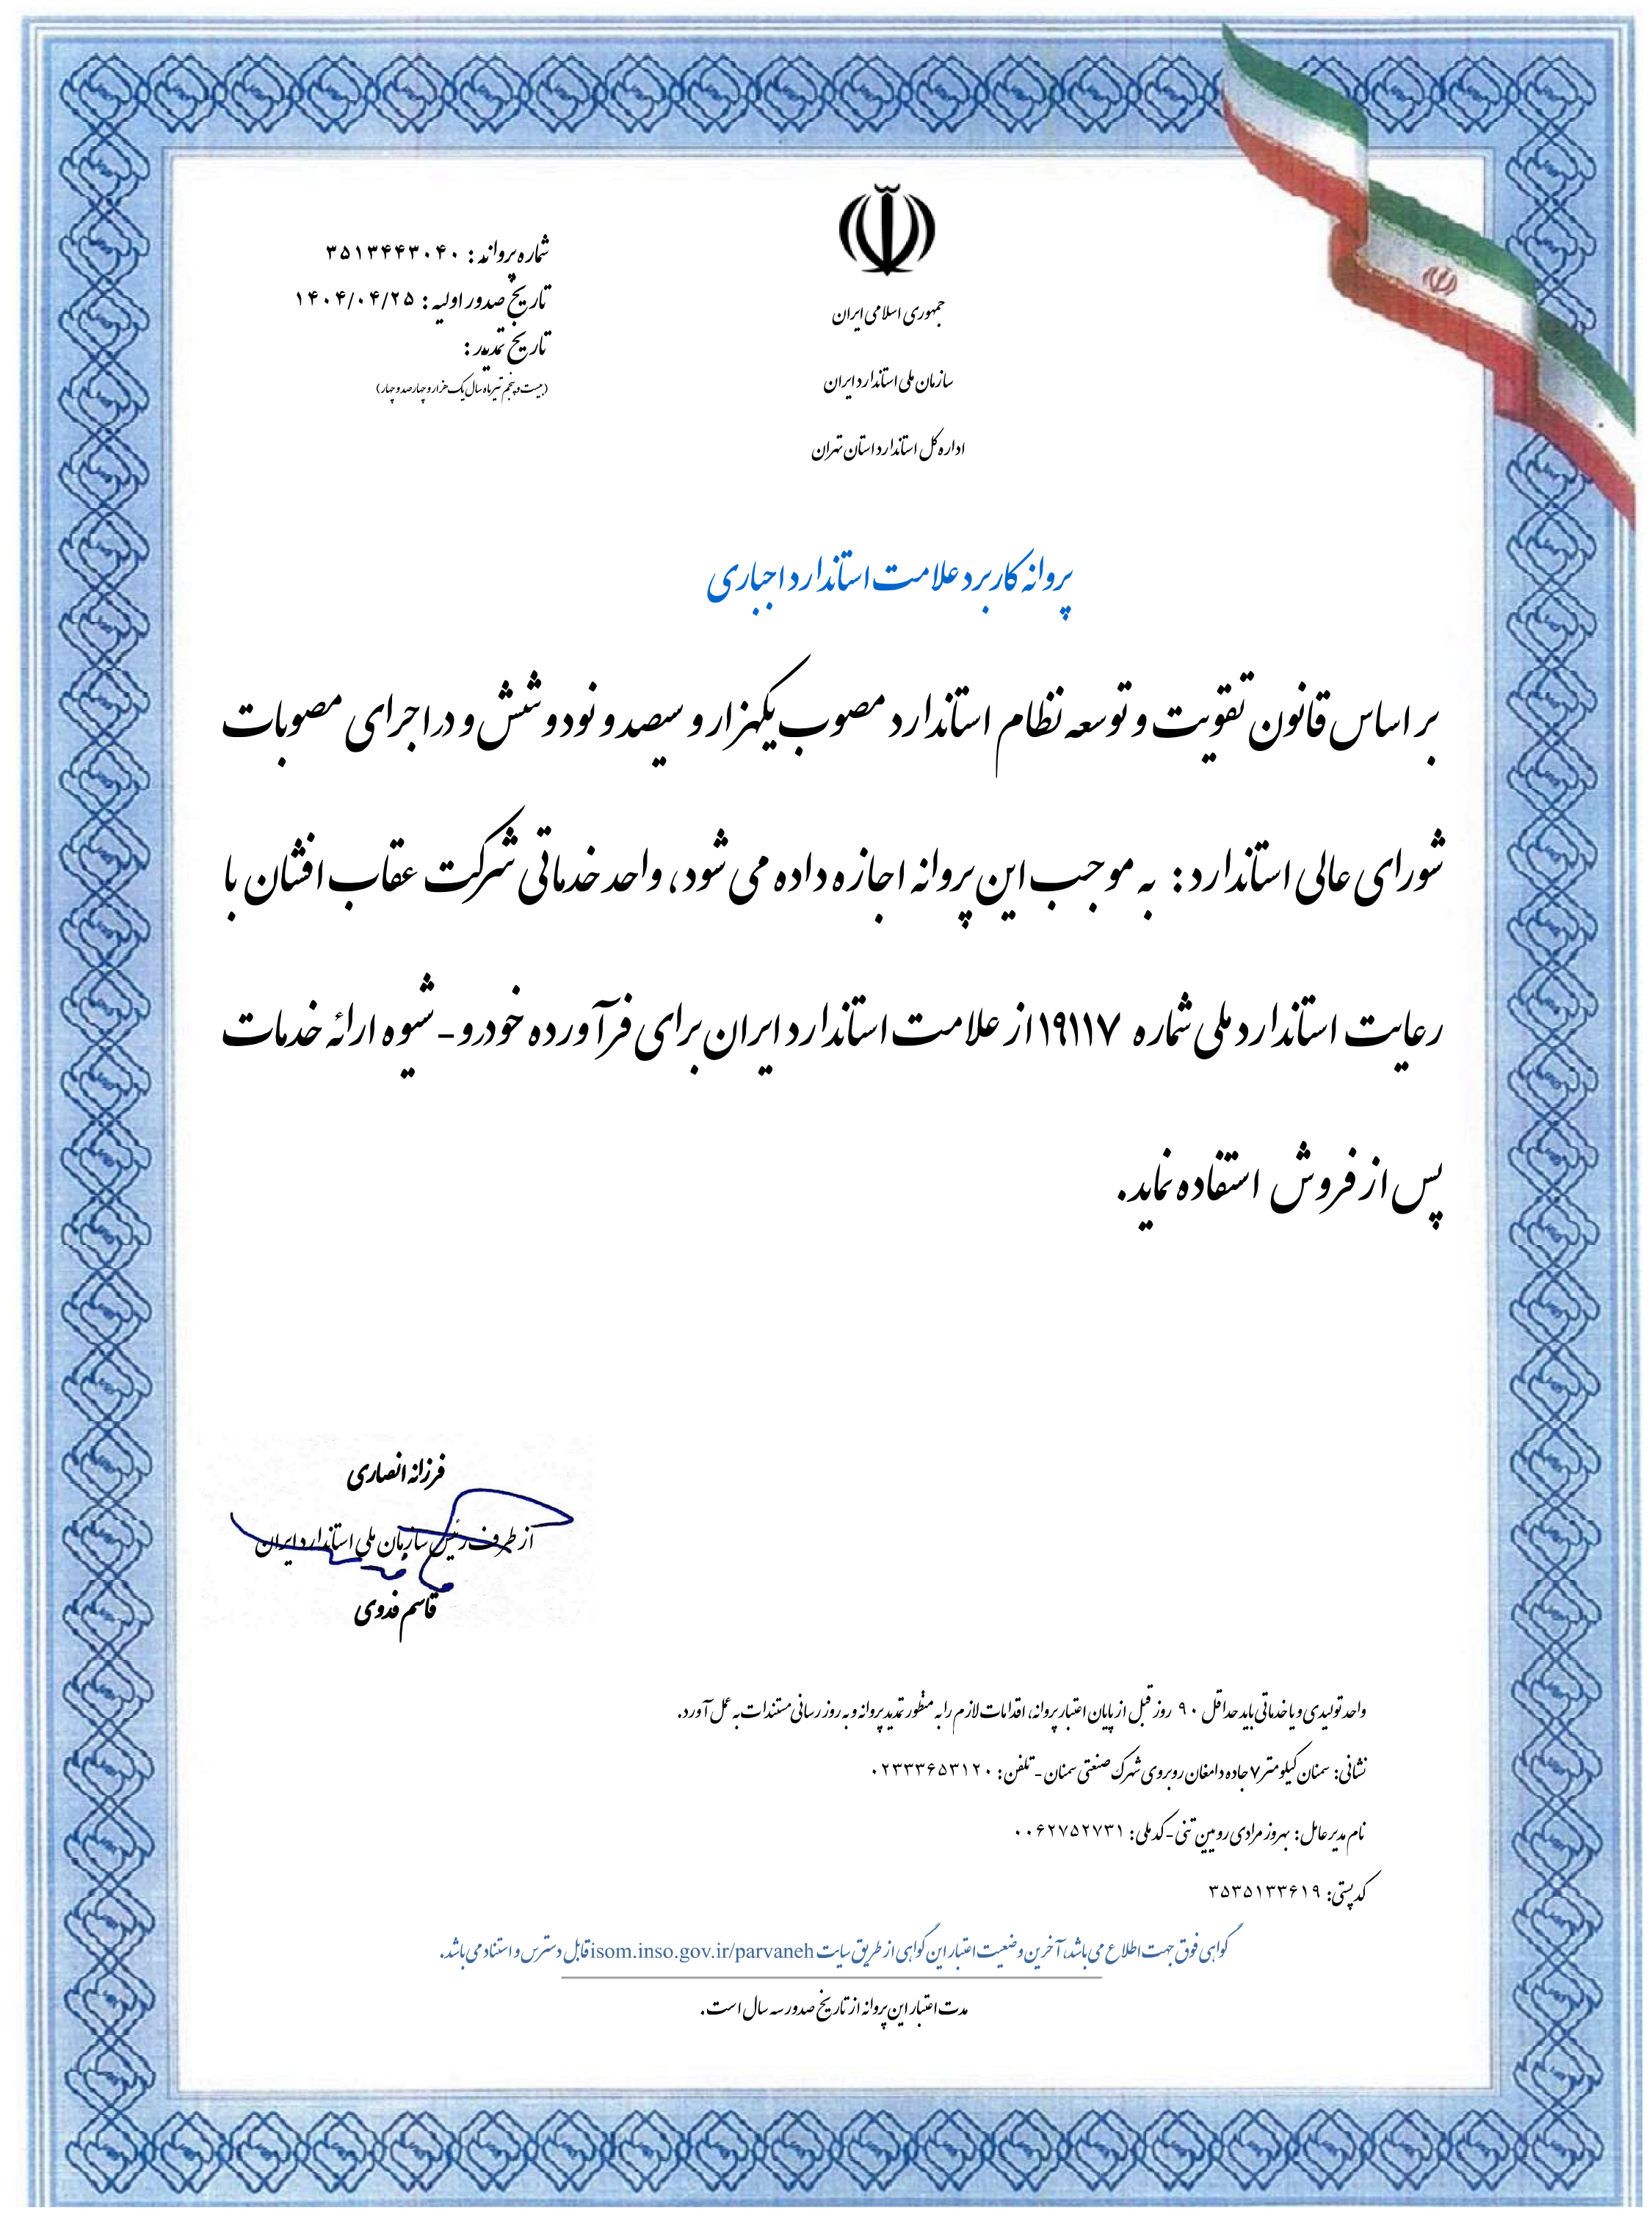 جمهوری اسلامی ایران
سازمان ملی استاندارد ایران
اداره کل استاندارد استان تهران
شماره پروانه : ۳۵۱۳۴۴۳۰۴۰
تاریخ صدور اولیه : ۱۴۰۴/۰۴/۲۵
تاریخ تمدید :
(بیست و پنجم تیر ماه سال یک هزار و چهار صد و چهار)
پروانه کاربرد علامت استاندارد اجباری
بر اساس قانون تقویت و توسعه نظام استاندارد مصوب یکهزار و سیصد و نود و شش و در اجرای مصوبات
شورای عالی استاندارد : به موجب این پروانه اجازه داده می شود، واحد خدماتی شرکت عقاب افشان با
رعایت استاندارد ملی شماره ۱۹۱۱۷ از علامت استاندارد ایران برای فرآورده خودرو - شیوه ارائه خدمات
پس از فروش استفاده نماید.
فرزانه انصاری
از طرف رئیس سازمان ملی استاندارد ایران
قاسم فدوی
واحد تولیدی و یا خدماتی باید حداقل ۹۰ روز قبل از پایان اعتبار پروانه، اقدامات لازم را به منظور تمدید پروانه و به روز رسانی مستندات به عمل آورد.
نشانی: سمنان کیلومتر ۷ جاده دامغان روبروی شهرک صنعتی سمنان - تلفن: ۰۲۳۳۳۶۵۳۱۲۰
نام مدیر عامل : بهروز مرادی رویین تنی - کد ملی: ۰۰۶۲۷۵۲۷۳۱
کد پستی: ۳۵۳۵۱۳۳۶۱۹
گواهی فوق جهت اطلاع می باشد، آخرین وضعیت اعتبار این گواهی از طریق سایت isom.inso.gov.ir/parvaneh قابل دسترس و استناد می باشد.
مدت اعتبار این پروانه از تاریخ صدور سه سال است.